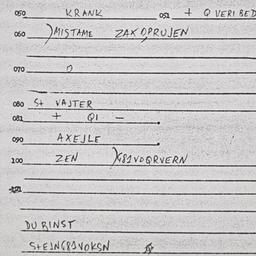 050 KRANK 051 + Q VERI BED
060 )MISTAME ZAXOPRUJEN
070 O
080 St VAJTER
081 + QI -
090 AXEJLE
100 ZEN
121
DU BINST